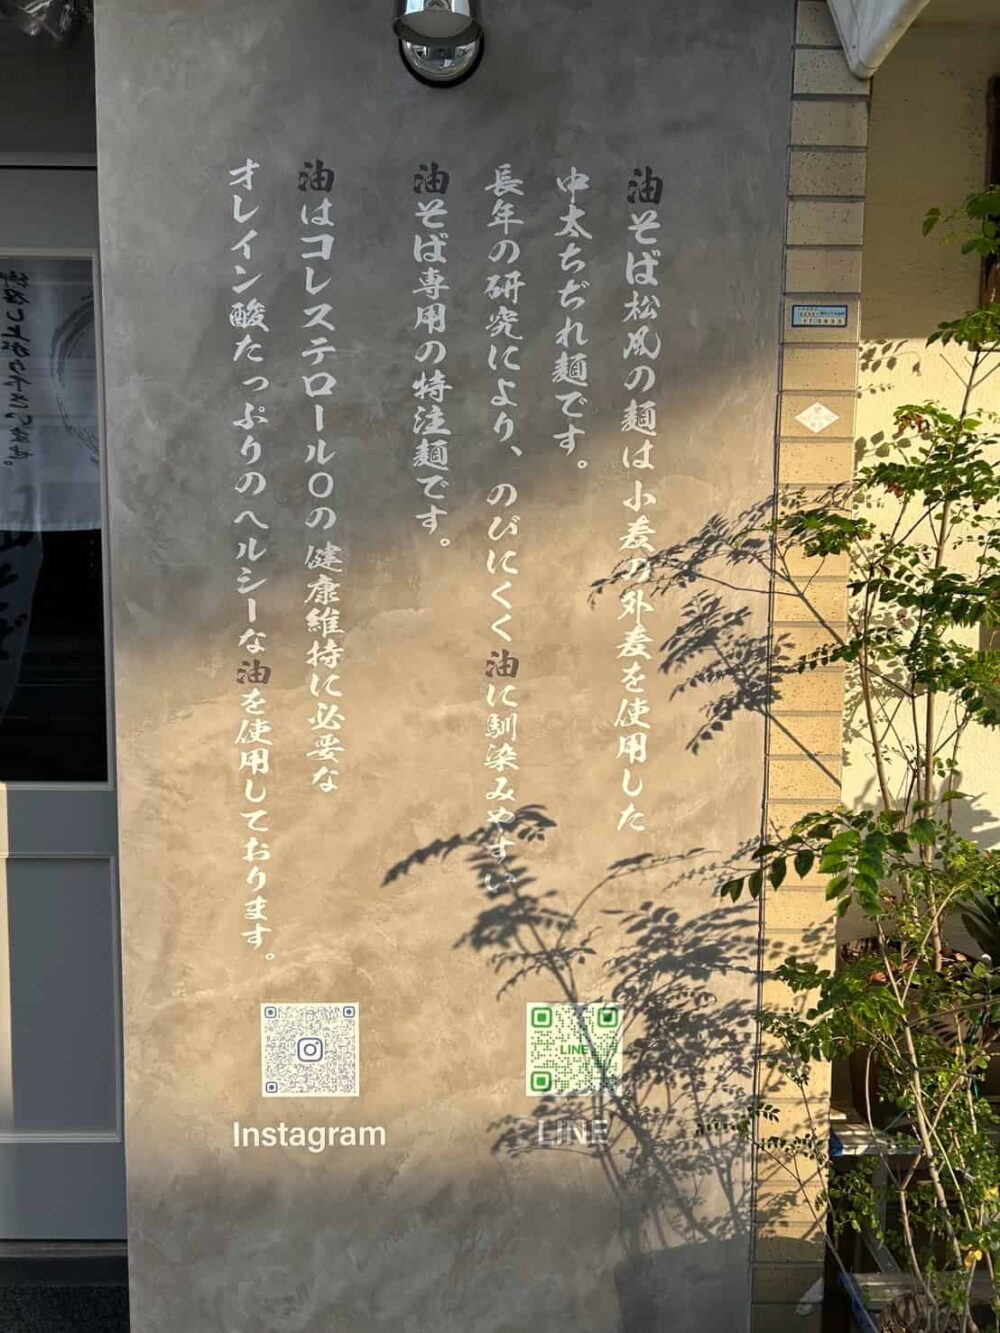 油そば松風の麺は小麦の外麦を使用した
中太ちぢれ麺です。
長年の研究により、のびにくく油に馴染みやすい
油そば専用の特注麺です。
油はコレステロール０の健康維持に必要な
オレイン酸たっぷりのヘルシーな油を使用しております。
Instagram
LINE
LINE